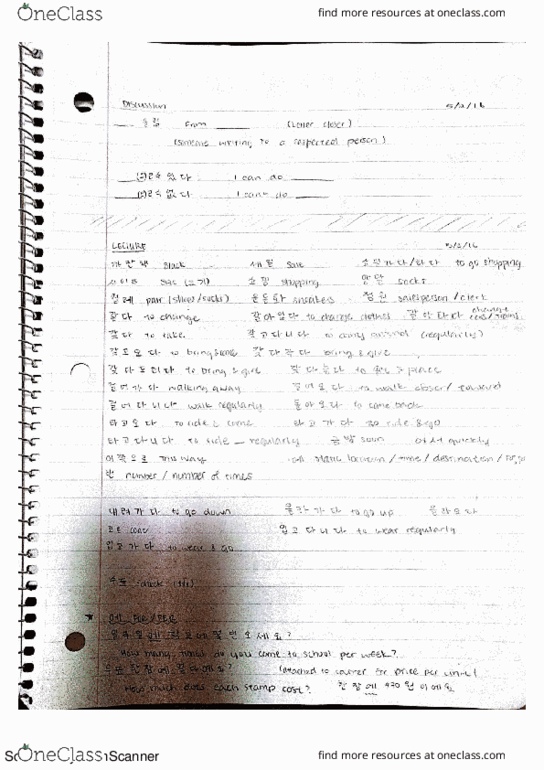 OneClass find more resources at oneclass.com
Discussion 5/2/16
올림 from (letter closer)
(someone writing to a respected person)
(으)ㄹ 수 있다 I can do
(으)ㄹ 수 없다 I can't do
LECTURE 5/2/16
까만색 black 세일 sale 쇼핑가다/하다 to go shopping
사이즈 size 쇼핑 shopping 양말 socks
켤레 pair (shoes/socks) 운동화 sneakers 점원 salesperson/clerk
to change 갈아입다 to change clothes 갈아타다 change
to take 갖고다니다 to carry around (regularly)
갖고오다 to bring 갖다주다 bring & give
갖다드리다 to bring & give
걸어가다 walking away 걸어오다 to walk closer/toward
걸어다니다 walk regularly 돌아오다 to come back
타고오다 to ride & come 타고가다 to ride & go
타고다니다 to ride regularly 금방 soon 어서 quickly
이쪽으로 this way 에 static location/time/destination/
번 number/number of times
내려가다 to go down 올라가다 to go up 올라오다
코트 coat 입고다니다 to wear regularly
입고가다 to wear & go
수표 check
에
일주일에 학교에 몇 번 오세요?
How many times do you come to school per week?
우표 한 장에 얼마예요? (attached to counter for price per unit)
How much does each stamp cost? 한 장에 420원이에요
OneClass Scanner find more resources at oneclass.com